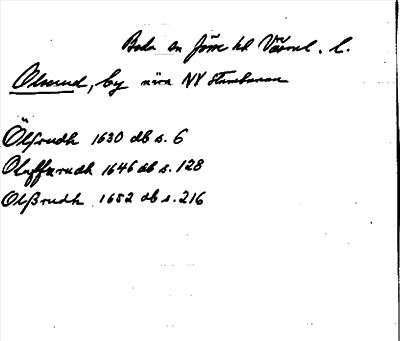 Boda sn Jösse hd Värml. l.
Olserud, by nära NV Hambanan
Ölsrudh 1630 db s. 6
Oluffzrudh 1646 db s. 128
Olßrudh 1652 db s. 216